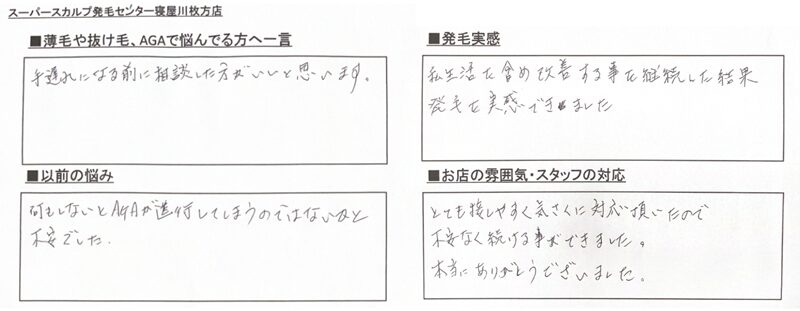 スーパースカルプ発毛センター寝屋川枚方店
■薄毛や抜け毛、AGAで悩んでる方へ一言
手遅れになる前に相談した方がいいと思います。
■以前の悩み
何もしないとAGAが進行してしまうのではないかと
不安でした.
■発毛実感
私生活を含め改善する事を継続した結果
発毛を実感できました
■お店の雰囲気・スタッフの対応
とても接しやすく気さくに対応頂いたので
不安なく続ける事ができました。
本当にありがとうございました。